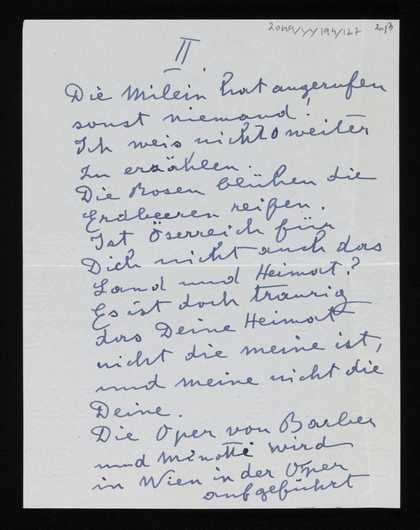 II.
Die Milein hat angerufen
sonst niemand!
Ich weis nicht weiter
zu erzählen.
Die Rosen blühen die
Erdbeeren reifen.
Ist Öserreich für
Dich nicht auch das
Land und Heimat?
Es ist doch traurig
das Deine Heimat
nicht die meine ist,
und meine nicht die
Deine.
Die Oper von Barber
und Minotti wird
in Wien in der Oper
aufgeführt